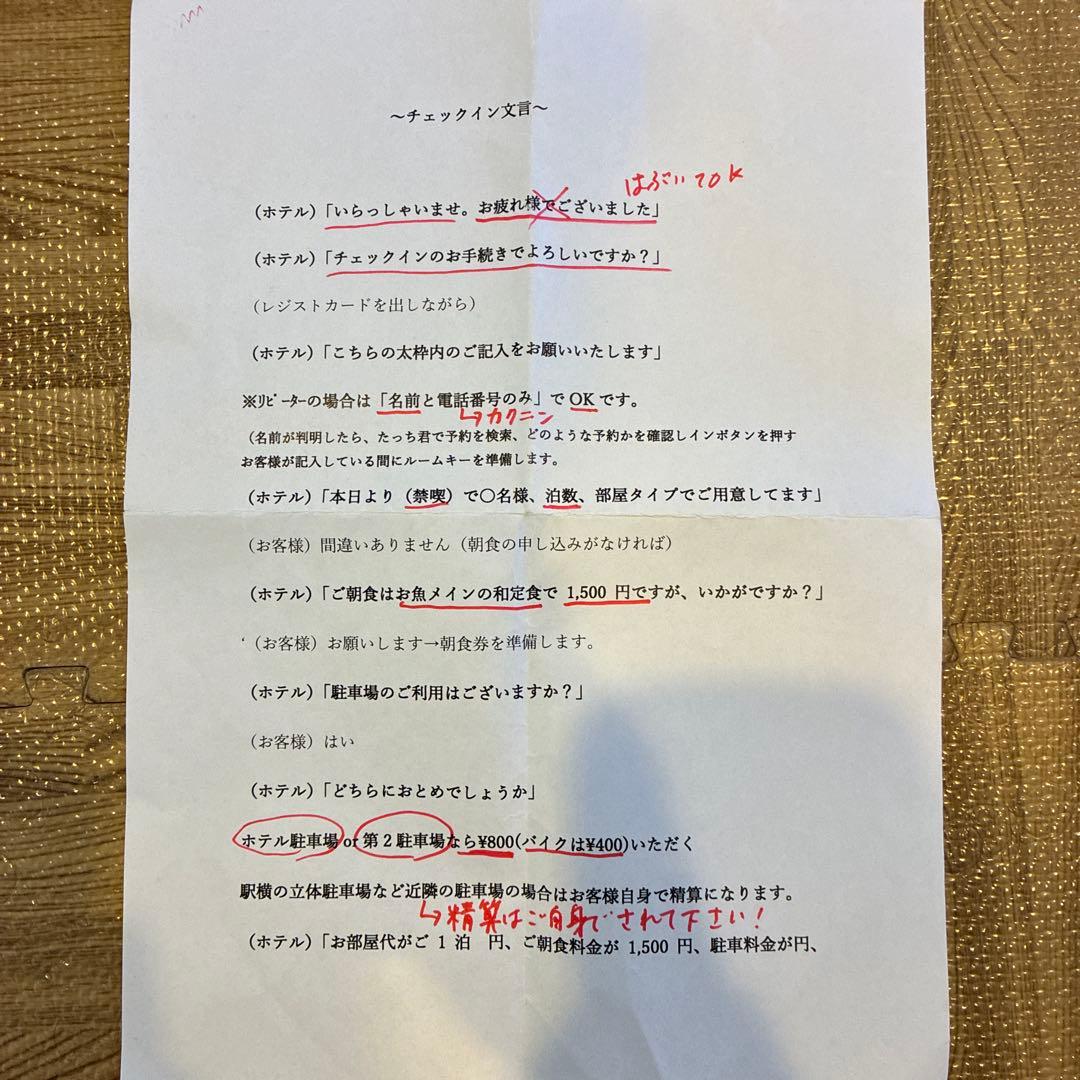 ～チェックイン文言～
はぶいてOK
（ホテル）「いらっしゃいませ。お疲れ様でございました」
（ホテル）「チェックインのお手続きでよろしいですか？」
（レジストカードを出しながら）
（ホテル）「こちらの太枠内のご記入をお願いいたします」
※ﾘﾋﾟｰﾀｰの場合は「名前と電話番号のみ」でOKです。
↳カクニン
（名前が判明したら、たっち君で予約を検索、どのような予約かを確認しインボタンを押す
お客様が記入している間にルームキーを準備します。
（ホテル）「本日より（禁喫）で〇名様、泊数、部屋タイプでご用意してます」
（お客様）間違いありません（朝食の申し込みがなければ）
（ホテル）「ご朝食はお魚メインの和定食で 1,500 円ですが、いかがですか？」
‘（お客様）お願いします→朝食券を準備します。
（ホテル）「駐車場のご利用はございますか？」
（お客様）はい
（ホテル）「どちらにおとめでしょうか」
ホテル駐車場 or 第２駐車場なら¥800(バイクは¥400)いただく
駅横の立体駐車場など近隣の駐車場の場合はお客様自身で精算になります。
↳精算はご自身でされて下さい！
（ホテル）「お部屋代がご 1 泊　円、ご朝食料金が 1,500 円、駐車料金が円、